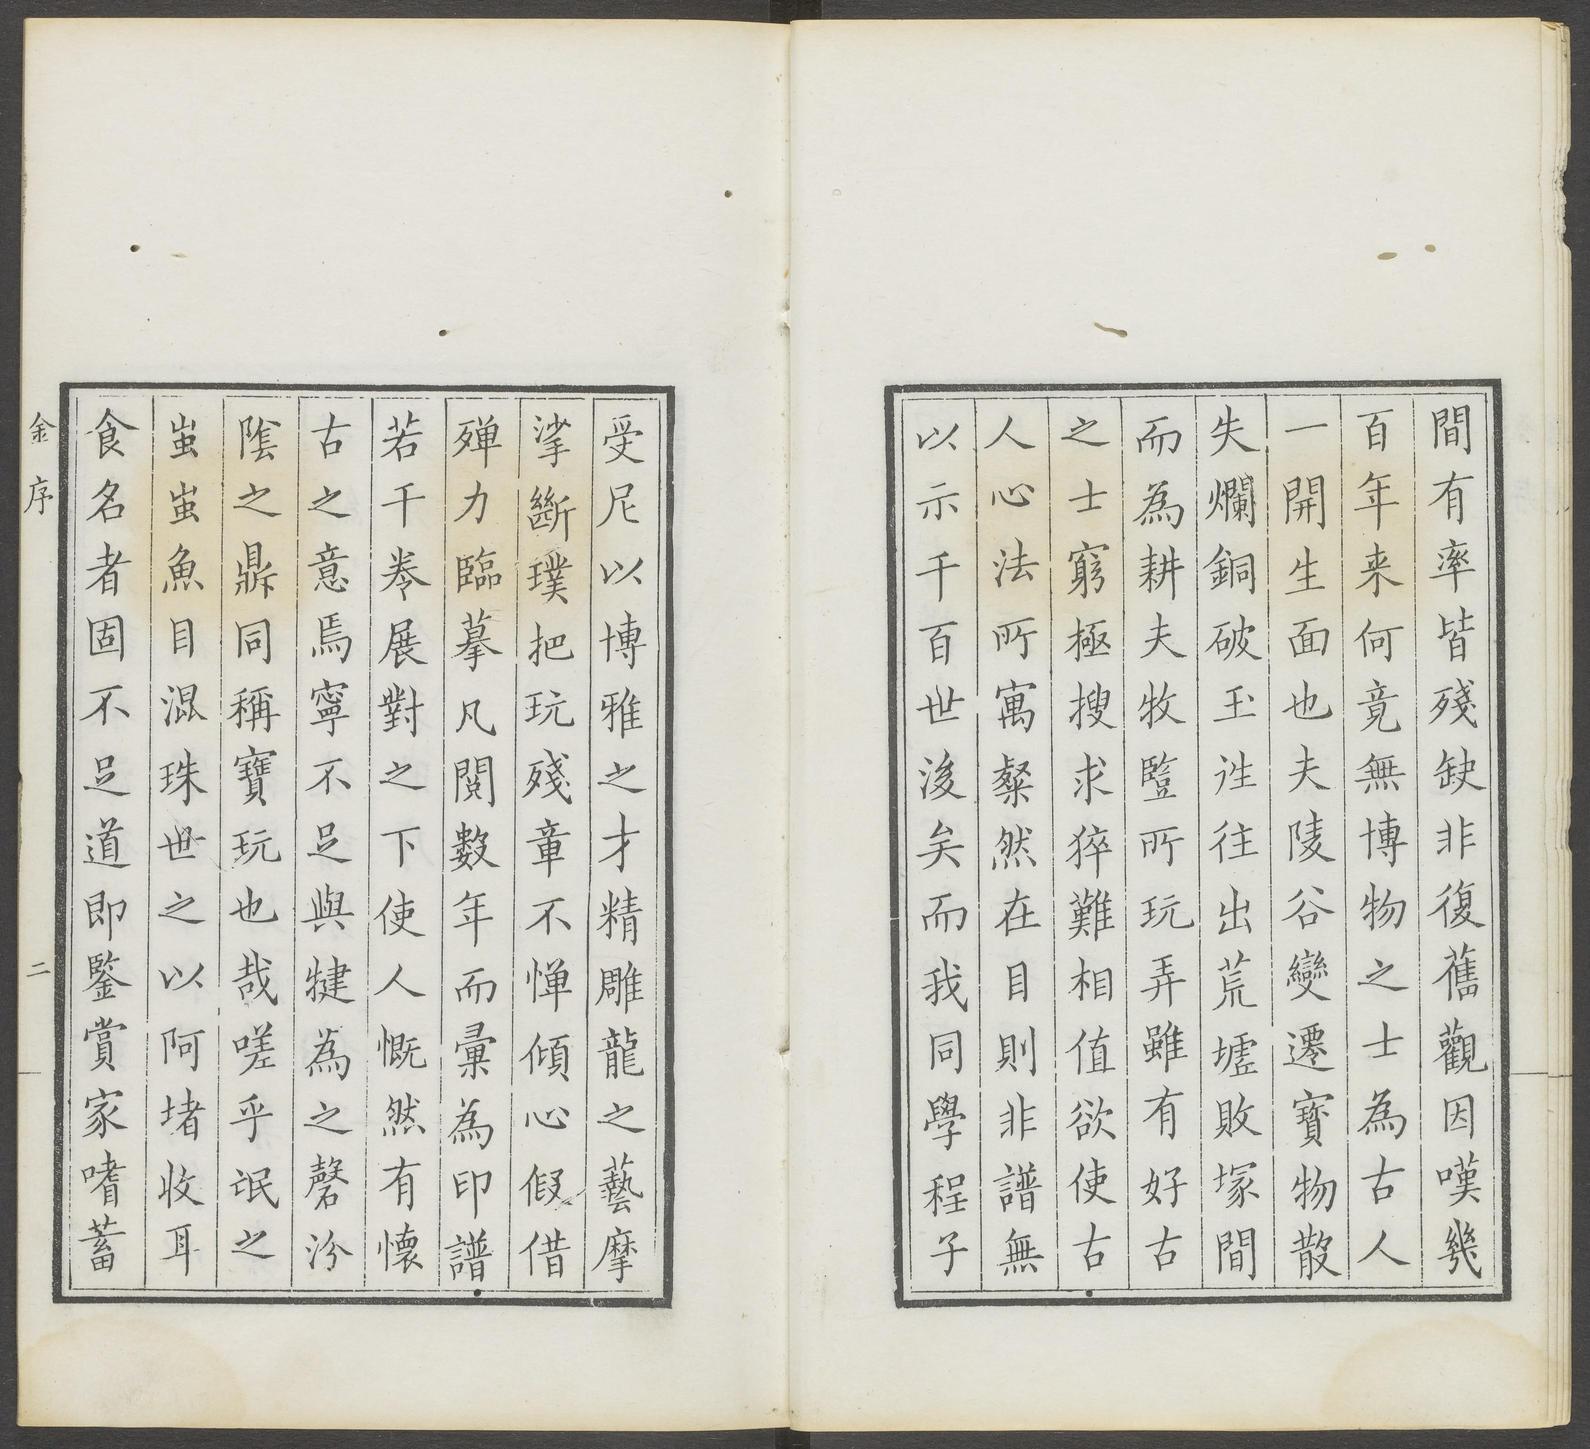 間有率皆殘缺非復舊觀因嘆幾
百年来何竟無博物之士為古人
一開生面也夫陵谷變遷寳物散
失爛銅破玉徃往出荒墟敗塚間
而為耕夫牧豎所玩弄雖有好古
之士窮極搜求猝難相值欲使古
人心法所寓粲然在目則非譜無
以示千百世後矣而我同學程子
受尼以博雅之才精雕龍之藝摩
挲斷璞把玩殘章不惮傾心假借
殫力臨摹凡閱數年而彙為印譜
若干卷展對之下使人慨然有懷
古之意焉寧不足與犍為之磬汾
陰之鼎同稱寶玩也哉嗟乎氓之
蚩蚩魚目混珠世之以阿堵收耳
食名者固不足道即鑒賞家嗜蓄
金序
二